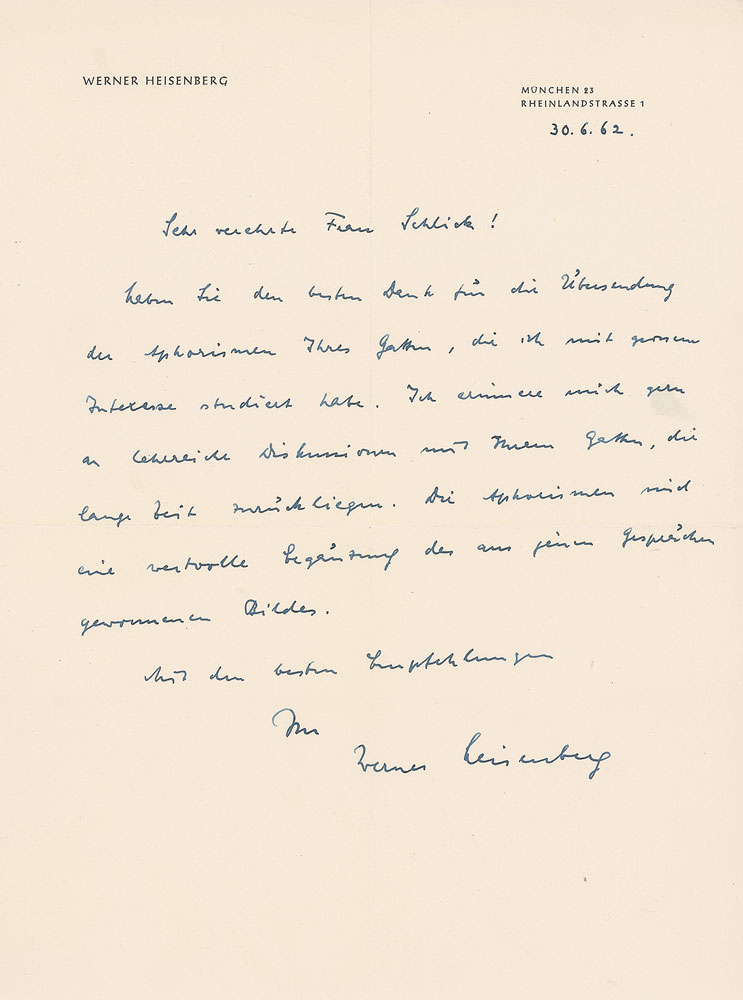 WERNER HEISENBERG
MÜNCHEN 23
RHEINLANDSTRASSE 1
30. 6. 62.
Sehr verehrte Frau Schlick!
haben Sie den besten Dank für die Übersendung
der Aphorismen Ihres Gatten, die ich mit grossem
Interesse studiert habe. Ich erinnere mich gern
an lehrreiche Diskussionen mit Ihrem Gatten, die
lange Zeit zurückliegen. Die Aphorismen sind
eine wertvolle Ergänzung des aus jenen Gesprächen
gewonnenen Bildes.
Mit den besten Empfehlungen
Ihr
Werner Heisenberg